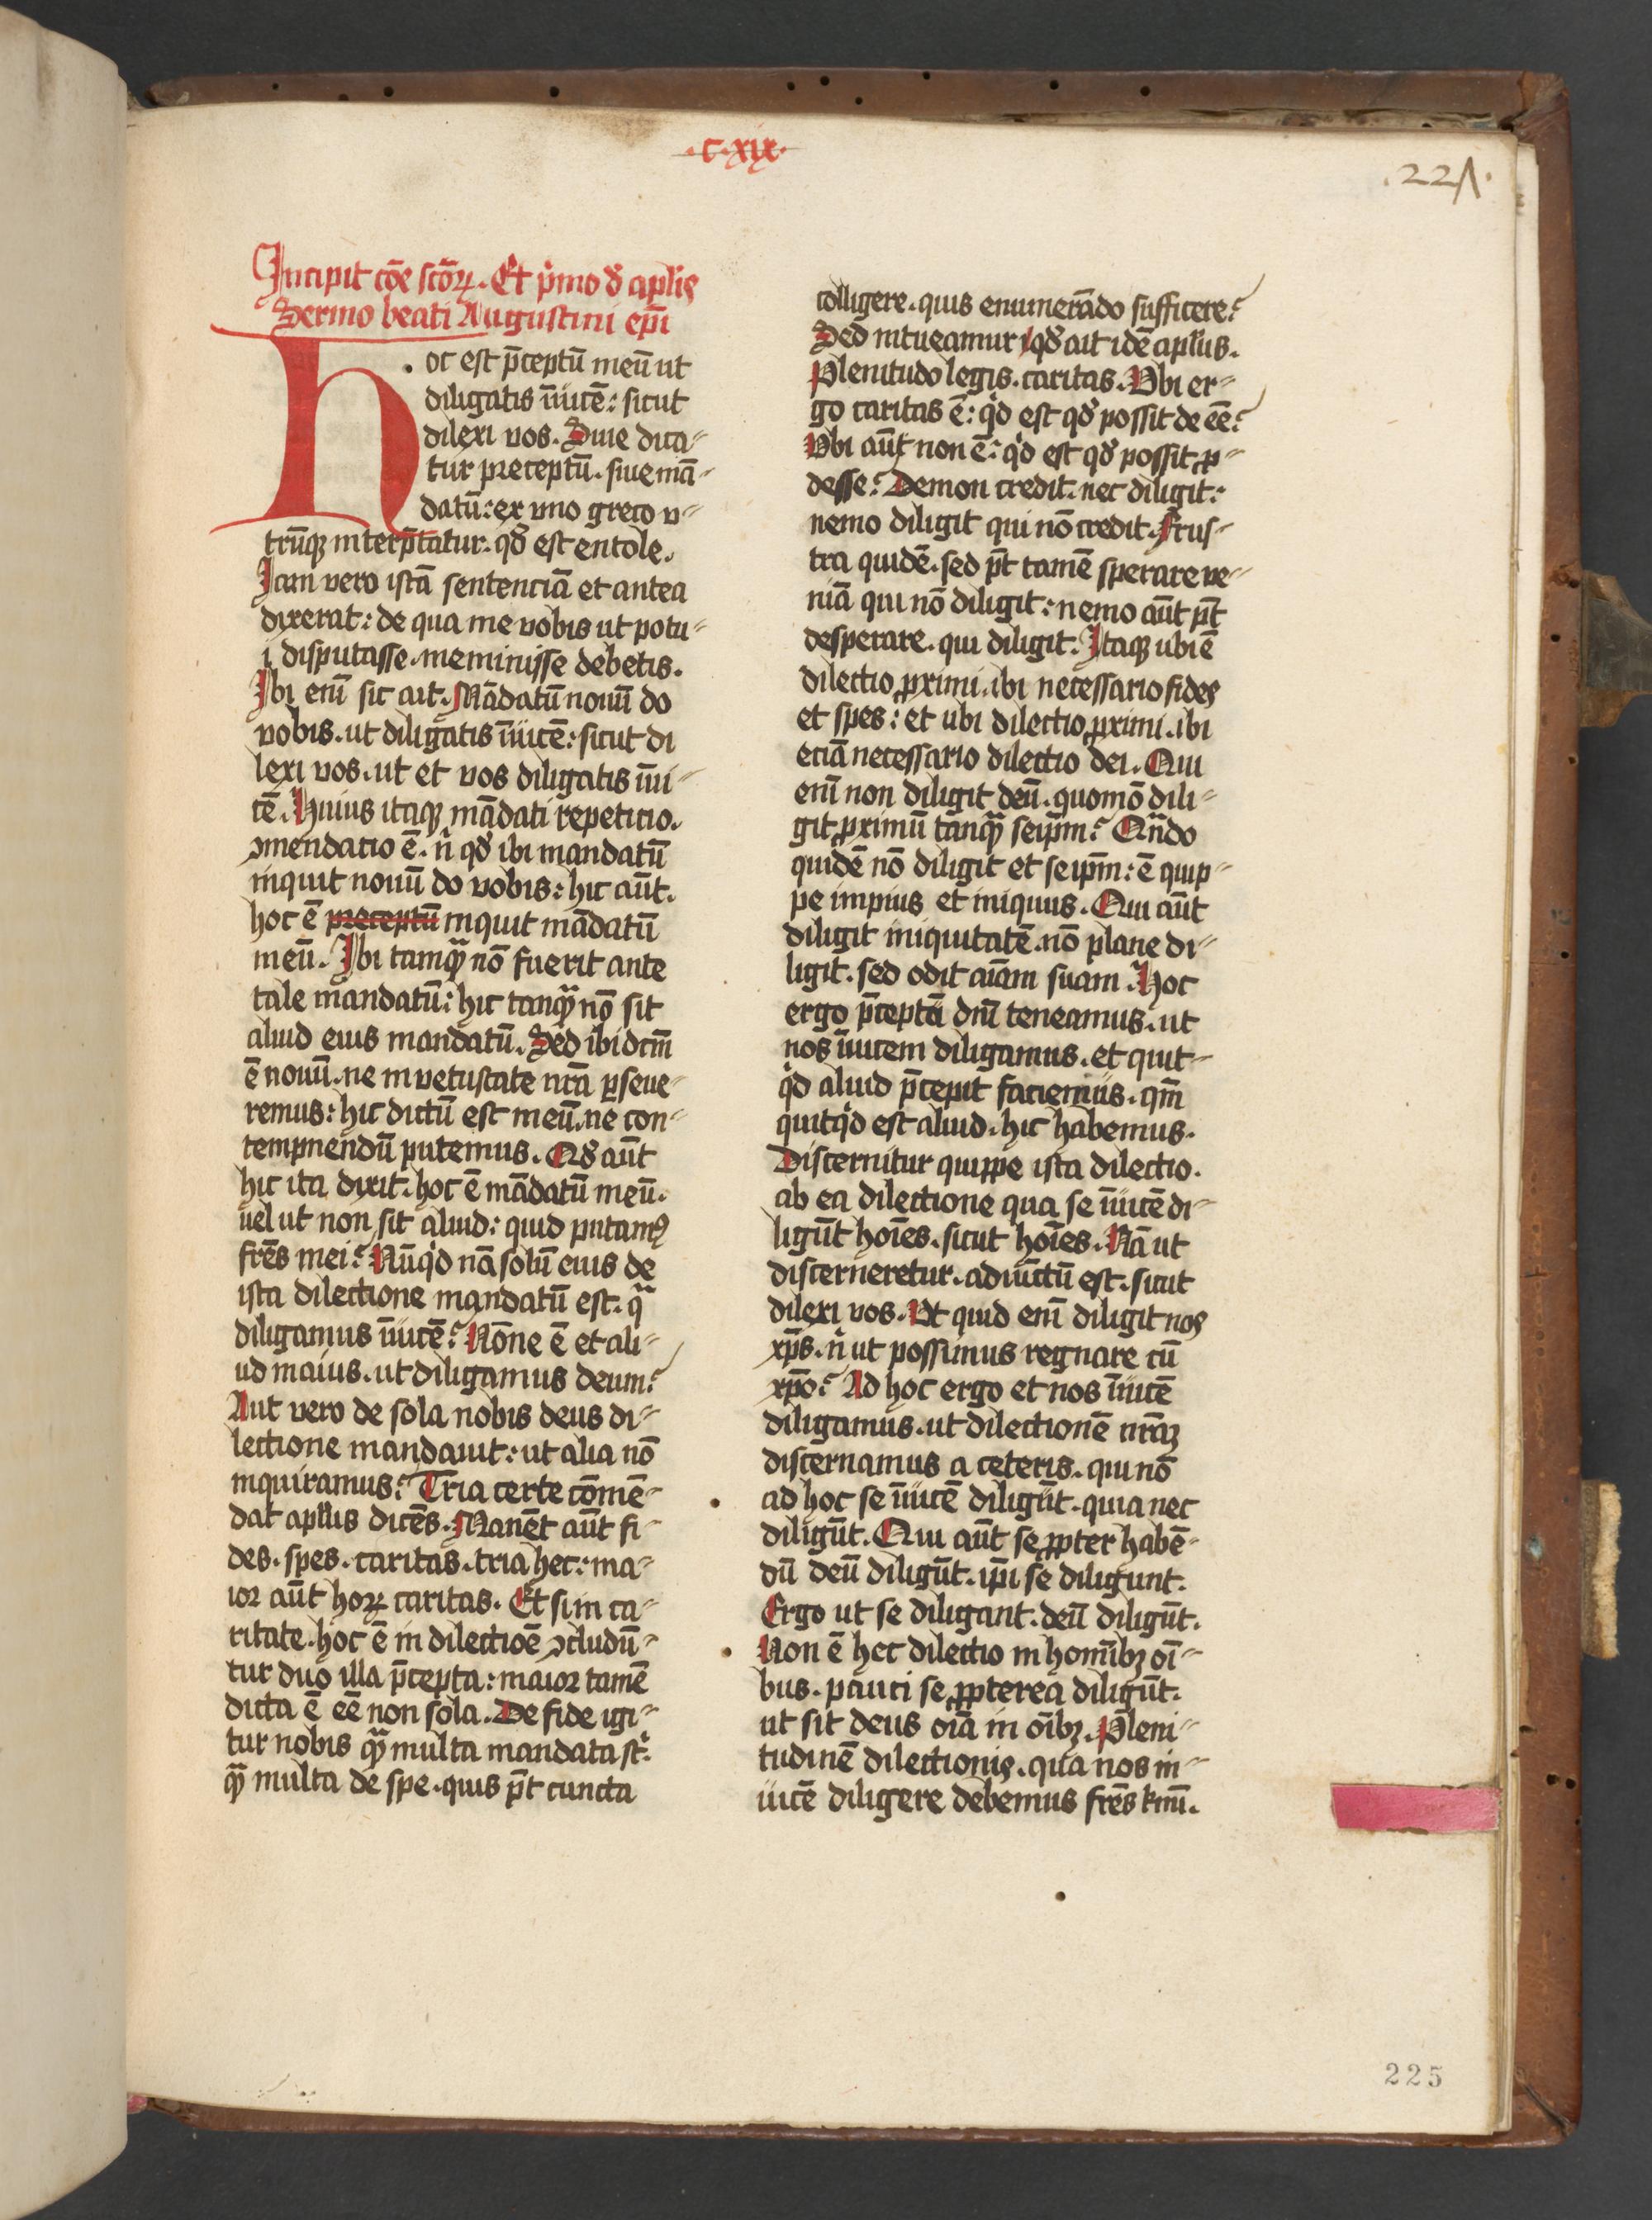 .c.xix.
.221.
Incipit cōe scōꝝ. Et pͥmo đ aplis
Sermo beati Augustini epī
Hoc est p̄ceptū meū ut
diligatis īuicē: sicut
dilexi vos. Siue dica⸗
tur preceptū. siue mā⸗
datū: ex vno greco v⸗
trūqꝫ interp̄tatur. qđ est entole.
Iam vero istā sentenciā et antea
dixerat: de qua me vobis ut potu⸗
i disputasse. meminisse debetis.
Ibi enī sic ait. Mādatū nouū do
vobis. ut diligatis īuicē: sicut di
lexi vos. ut et vos diligatis īui⸗
cē. Huius itaqꝫ mādati repeticio.
ꝯmendacio ē. nͥ qđ ibi mandatū
inquit nouū do vobis: hic aūt.
hoc ē preceptū inquit mādatū
meū. Ibi tamqͣꝫ nō fuerit ante
tale mandatū: hic tanqͣꝫ nō sit
aliud eius mandatū. Sed ibi dcm̄
ē nouū. ne in vetustate nrā ꝑseue⸗
remus: hic dictū est meū. ne con⸗
tempnendū putemus. Qđ aūt
hic ita dixit. hoc ē mādatū meū.
uel ut non sit aliud: quid putamꝰ
frēs mei? Nūqͥd nā solū eius de
ista dilectione mandatū est. qͣ
diligamus īuicē? Nōne ē et ali⸗
ud maius. ut diligamus deum?
Aut vero de sola nobis deus di⸗
lectione mandauit: ut alia nō
inquiramus? Tria certe cōmē⸗
dat aplus dicēs. Manēt aūt fi⸗
des. spes. caritas. tria hec: ma⸗
ior aūt hoꝝ caritas. Et si in ca⸗
ritate. hoc ē in dilectiōe ꝯcludū⸗
tur duo illa p̄cepta: maior tamē
dicta ē eē non sola. De fide igi⸗
tur nobis qͣꝫ multa mandata st̄:
qͣꝫ multa de spe. quis pt̄ cuncta
colligere. quis enumerādo sufficere?
Sed intueamur qđ ait idē aplus.
Plenitudo legis. caritas. Vbi er⸗
go caritas ē: qͥd est qđ possit de eē?
Vbi aūt non ē: qͥd est qđ possit ꝓ⸗
desse? Demon credit. nec diligit:
nemo diligit qui nō credit. Frus⸗
tra quidē. sed pt̄ tamē sperare ve⸗
niā qui nō diligit: nemo aūt pt̄
desperare. qui diligit. Itaqꝫ ubi ē
dilectio ꝓximi. ibi necessario fides
et spes: et ubi dilectio ꝓximi. ibi
eciā necessario dilectio dei. Qui
enī non diligit deū. quomō dili⸗
git ꝓximū tānqͣꝫ seipm̄? Qn̄do
quidē nō diligit et seipm̄: ē quip⸗
pe impius et iniquus. Qui aūt
diligit iniquitatē. nō plane di⸗
ligit. sed odit aīam suam. Hoc
ergo p̄ceptū dnī teneamus. ut
nos īuicem diligamus. et quit⸗
qͥd aliud p̄cepit faciemus. qm̄
quitqͥd est aliud. hic habemus.
Discernitur quippe ista dilectio.
ab ea dilectione qua se īuicē di⸗
ligūt hoīes. sicut hoīes. Nā ut
discerneretur. adiūctū est. sicut
dilexi vos. Vt quid enī diligit nos
xp̄s. nͥ ut possimus regnare cū
xp̄o? Ad hoc ergo et nos īuicē
diligamus. ut dilectionē nrāꝫ
discernamus a ceteris. qui nō
ad hoc se īuicē diligūt. quia nec
diligūt. Qui aūt se ꝓpter habē⸗
dū deū diligūt. ip̄i se diligunt.
Ergo ut se diligant. deū diligūt.
Non ē hec dilectio in homībꝫ oī⸗
bus. pauci se ꝓpterea diligūt.
ut sit deus oīa in oībꝫ. Pleni⸗
tudinē dilectionis. qua nos in⸗
uicē diligere debemus frēs kmī.
225